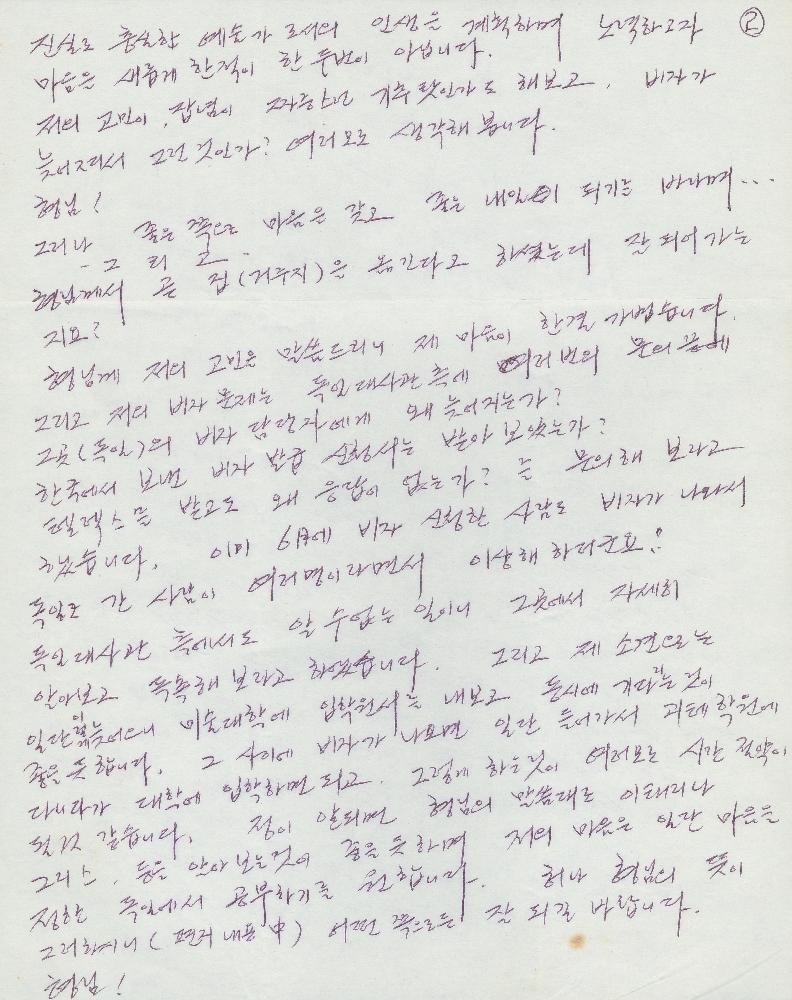 ②
진실로 충실한 예술가로서의 인생을 계획하며 노력하고자
마음은 새롭게 한적이 한 두번이 아닙니다.
저의 고민이, 잡념이 기우 탓인가도 해보고, 비자가
늦어져서 그런 것인가? 여러모로 생각해 봅니다.
형님!
그러나 좋은 쪽으로 마음은 갖고 좋은 내일이 되기를 바라며...
그리고.
형님께서 곧 집(거주지)을 옮긴다고 하셨는데 잘 되어가는
지요?
형님께 저의 고민을 말씀드리니 제 마음이 한결 가볍습니다.
그리고 저의 비자 문제는 독일대사관측에 여러번의 문의 끝에
그곳(독일)의 비자 담당자에게 왜 늦어지는가?
한국에서 보낸 비자 발급 신청서는 받아 보았는가?
텔렉스를 받고도 왜 응답이 없는가? 를 문의해 보라고
했습니다. 이미 6月에 비자 신청한 사람도 비자가 나와서
독일로 간 사람이 여러명이라면서 이상해 하더군요!
독일대사관 측에서도 알 수 없는 일이니 그곳에서 자세히
알아보고 독촉해 보라고 하였습니다. 그리고 제 소견으로는
일단 늦었으니 미술대학에 입학원서를 내보고 동시에 기다리는 것이
좋을 듯 합니다. 그 사이에 비자가 나오면 일단 들어가서 괴테 학원에
다니다가 대학에 입학하면 되고. 그렇게 하는것이 여러모로 시간 절약이
될것 같습니다. 정이 안되면 형님의 말씀대로 이태리나
그리스, 등을 알아보는것이 좋을 듯하며 저의 마음은 일단 마음을
정한 독일에서 공부하기를 원합니다. 허나 형님의 뜻이
그러하시니 (편지 내용 中) 어떤 쪽으로든 잘 되길 바랍니다.
형님!